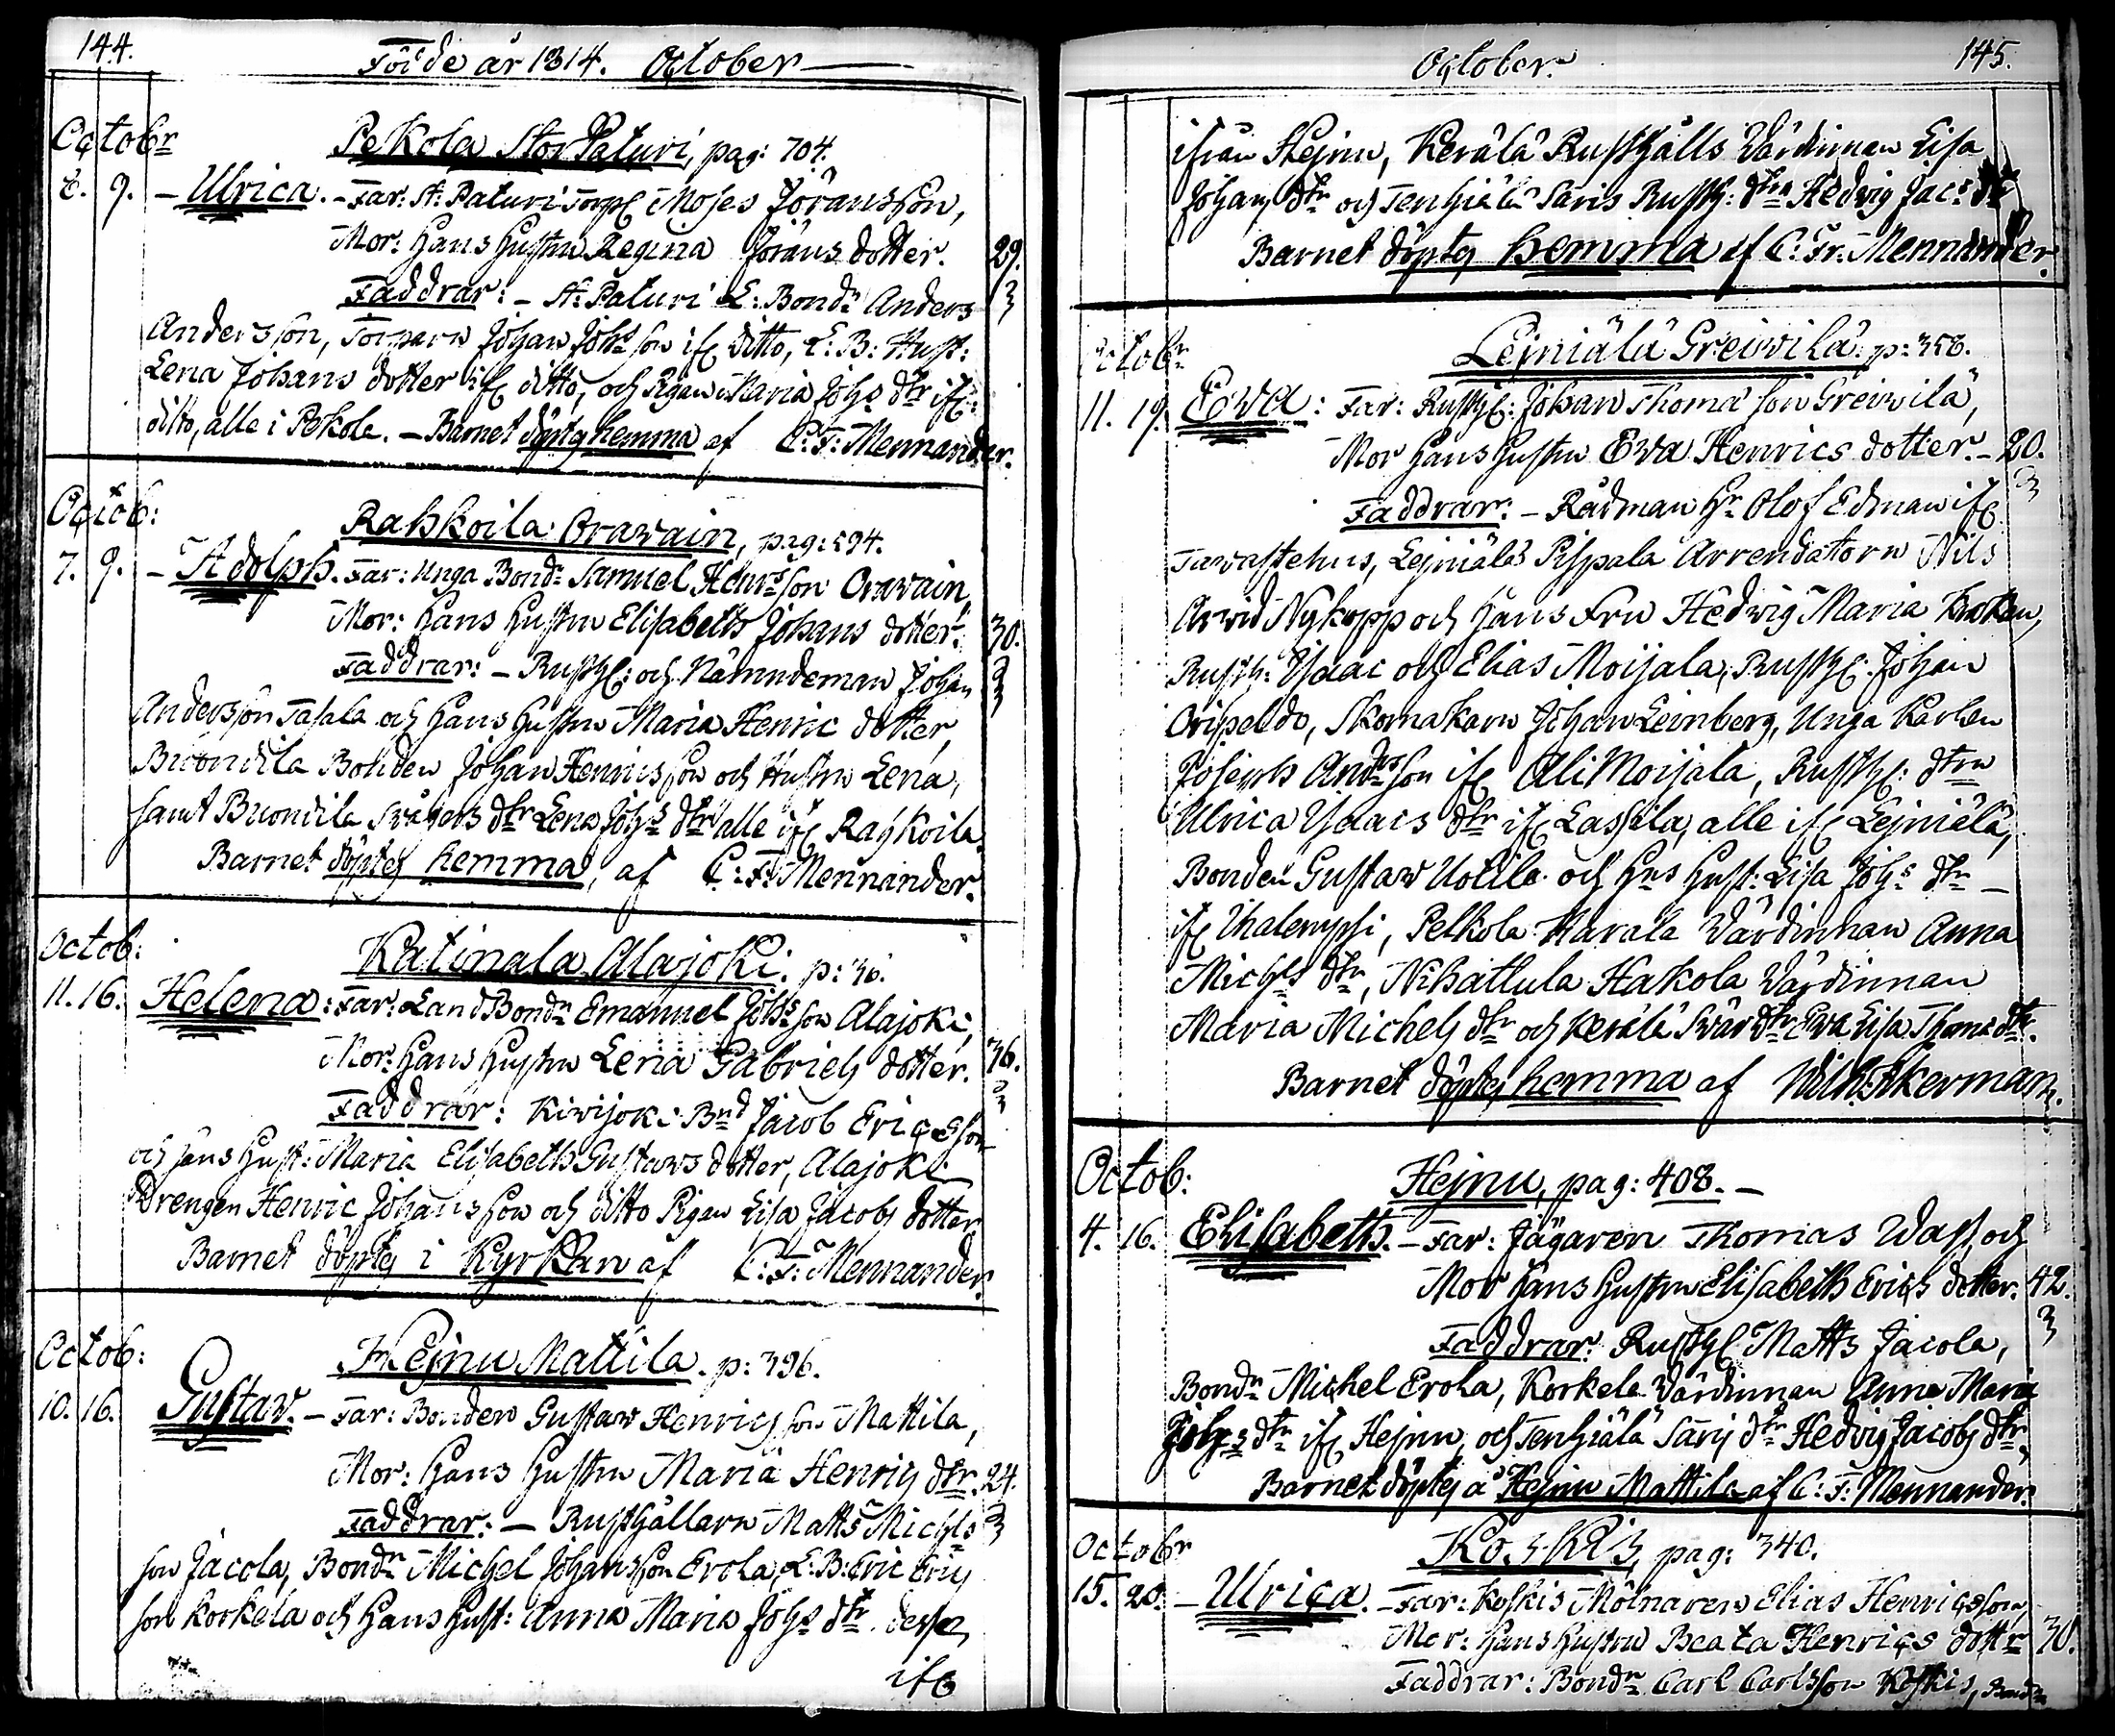 144.
Födde år 1814. October
Octobr
Pekola StorPaturi, pag: 704.
8. 9. – Ulrica. – Far: St: Paturi Torp. Moses Jöransson,
Mor: Hans Hustru Regina Jörans dotter. 29.
Faddrar: – St: Paturi L: Bondn Anders 3
Andersson, Torparn Johan Johs son ifr ditto, L: B: Hust:
Lena Johans dotter ifr ditto, och Pigan Maria Johs dtr ifr:
ditto, alla i Pekola. – Barnet döptes hemma af C: F: Mennander.
Octob:
Rahkoila Orawain, pag: 594.
7. 9. – Adolph. Far: Unga Bondn Samuel Henrs son Orawain,
Mor: Hans Hustru Elisabeth Johans dotter. 30.
Faddrar: – Rusth: och Nämndeman Johan 3
Andersson Tasala och Hans Hustru Maria Henric dotter,
Bonden Johan Henricsson och Hustru Lena,
samt dtr Lena Johs dtr alle ifr Rahkoila.
Barnet döptes hemma, af C: F: Mennander.
Octob:
Katinala Alajoki. p: 36.
11. 16. Helena: Far: Land Bondn Emanuel Johs son Alajoki,
Mor: Hans Hustru Lena Gabriels dotter. 36.
Faddrar: Kiwijoki Bnd Jacob Ericsson 3
och Hans Hust: Maria Elisabeth Gustaws dotter, Alajoki
Drengen Henric Johansson och ditto Pigan Lisa Jacobs dotter
Barnet döptes i Kyrkan af C: F: Mennander.
Octob:
Hejnu Mattila. p: 396.
10. 16. Gustaw. – Far: Bonden Gustaw Henrics son Mattila,
Mor: Hans Hustru Maria Henrics dtr. 24.
Faddrar: – Rusthållarn Matts Michls 3
son Jacola, Bondn Michel Johansson Erola, L: B: Eric Erics
son Korkela och Hans Hust: Anna Maria Johs dtr. desse,
ifr
145.
October.
ifrån Hejnu, Kerälä Rusthålls Wärdinnan Lisa
Johans dtr och Tenhiälä Saris Rusth: dtrn Hedvig Jacs dtr
Barnet döptes hemma af C: Fr: Mennander.
Octobr
Lejniälä Greiwilä. p: 358.
11. 19. Ewa: Far: Rusth: Johan Thomas son Greiwilä,
Mor Hans Hustru Ewa Henrics dotter. – 20.
Faddrar: – Rådman Hr Olof Edman ifr 3
Tavastehus, Lejniälä Pispala Arrendatorn Nils
Arvid Nykopp och Hans Fru Hedwig Maria
Rusth: Isaac och Elias Moijala, Rusth: Johan
Skomakarn Johan Leinberg, Unga Karlen
Joseph Andrs son ifr Ali Moijala, Rusth: dtrn
Ulrica Isaacs dtr ifr Lassila, alle ifr Lejniälä,
Bonden Gustaw Uotila och Hns Hust: Lisa Johs dtr –
ifr Ihalempi, Pelkola Marala Wärdinnan Anna
Michls dtr, Nihattula Hakola Wärdinnan
Maria Michels dtr och Kerälä Svär dtr Ewa Lisa Thomæ dtr.
Barnet döptes hemma af Wilh: Åkerman.
Octob:
Hejnu, pag: 408. –
4. 16. Elisabeth. – Far: Jägaren Thomas Wass, och
Mor Hans Hustru Elisabeth Erics dotter. 42.
Faddrar: Rusth. Matts Jacola, 3
Bondn Michel Erola, Korkela Wärdinnan Anna Maria
Johs dtr ifr Hejnu, och Tenhiälä Saris dtr Hedvig Jacobs dtr.
Barnet döptes å Hejnu Mattila af C: F: Mennander.
Octobr
Koskis, pag: 340.
15. 20. – Ulrica. – Far: Koskis Mölnaren Elias Henricsson,
Mor: Hans Hustru Beata Henrics dottr 30.
Faddrar: Bondn Carl Carlsson Koskis, Bondn